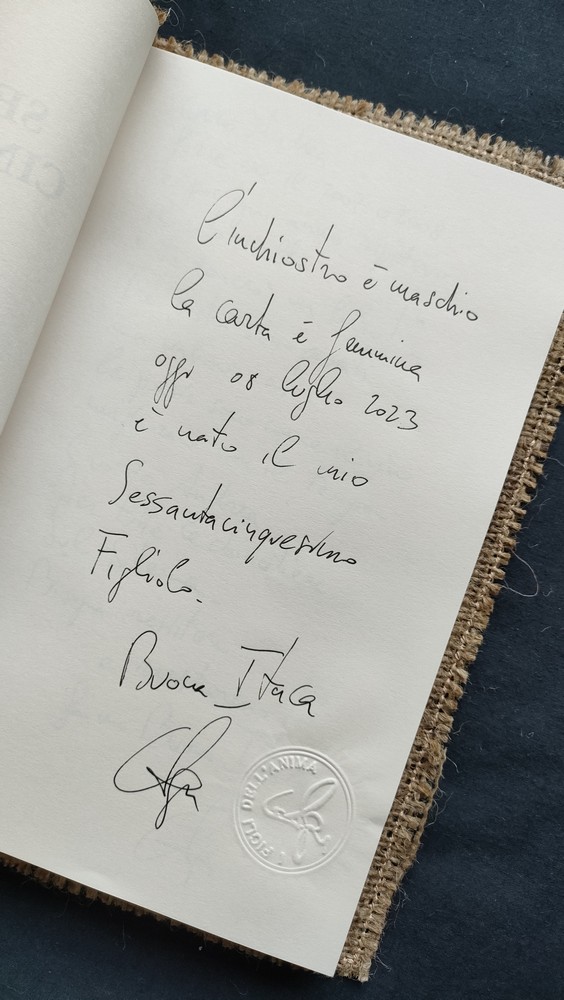 l'inchiostro è maschio
la carta è femmina
oggi 08 luglio 2023
è nato il mio
Sessantacinquesimo
Figliolo.
Buona Itaca
I FIGLI DELL'ANIMA